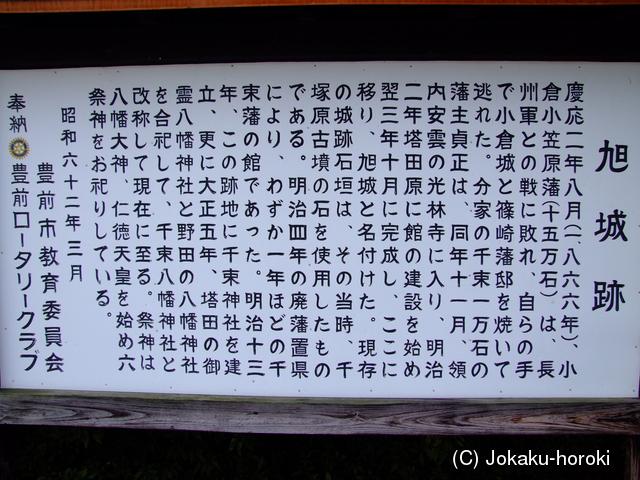 旭城跡
慶応二年八月(一、八六六年)、小
倉小笠原藩(十五万石)は、長
州軍との戦に敗れ、自らの手
で小倉城と篠崎藩邸を焼いて
逃れた。分家の千束一万石の
藩主貞正は、同年十一月、領
内安雲の光林寺に入り、明治
二年塔田原に館の建設を始め
翌三年十月に完成し、ここに
移り、旭城と名付けた。現存
の城跡石垣は、その当時、千
塚原古墳の石を使用したもの
である。明治四年の廃藩置県
により、わずか一年ほどの千
束藩の館であった。明治十三
年、この跡地に千束神社を建
立、更に大正五年、塔田の御
霊八幡神社と野田の八幡神社
を合祀して、千束八幡神社と
改称して現在に至る。祭神は
八幡大神、仁徳天皇を始め六
祭神をお祀りしている。
昭和六十二年三月
豊前市教育委員会
奉納 豊前ロータリークラブ
(C) Jokaku-horoki